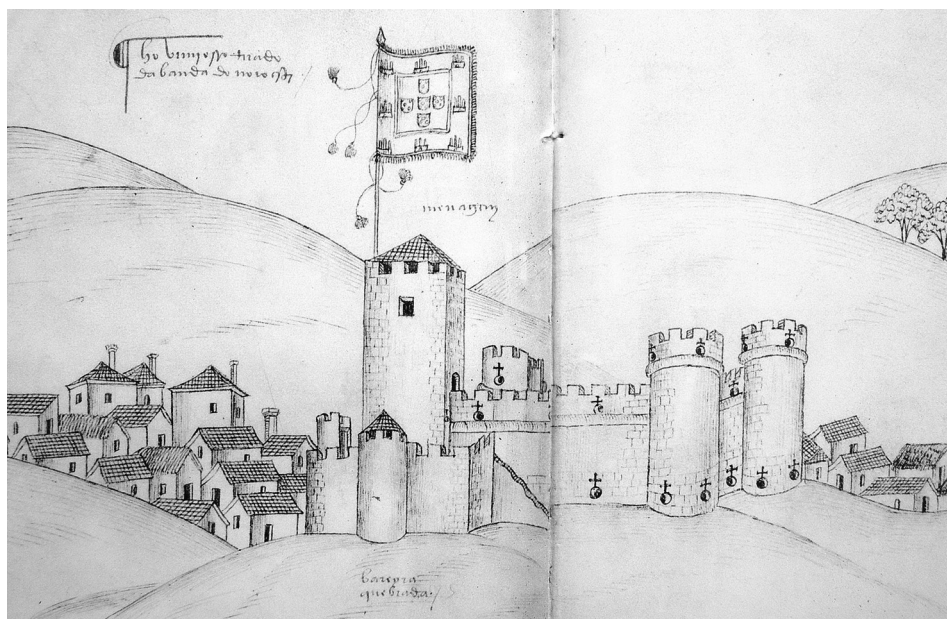 ho vimioso tirado
da banda do noroeste
menagem
bareyra
quebrada